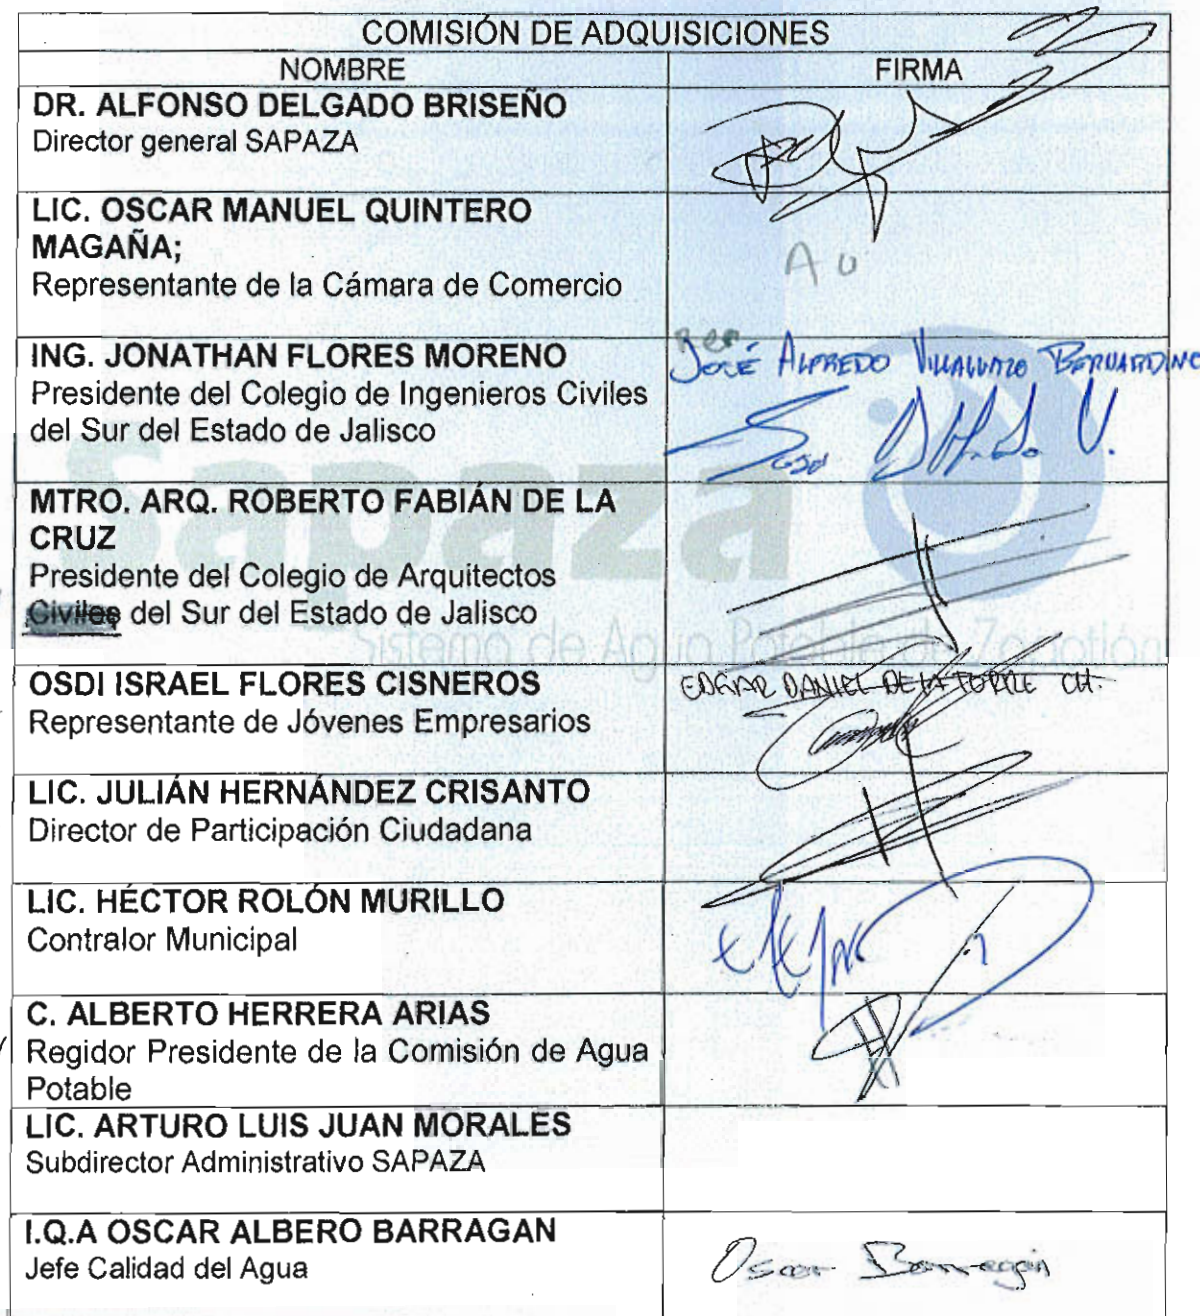 COMISIÓN DE ADQUISICIONES
NOMBRE FIRMA
DR. ALFONSO DELGADO BRISEÑO
Director general SAPAZA
LIC. OSCAR MANUEL QUINTERO
MAGAÑA;
Representante de la Cámara de Comercio
ING. JONATHAN FLORES MORENO
Presidente del Colegio de Ingenieros Civiles
del Sur del Estado de Jalisco
JOSÉ ALFREDO BERNARDINO
MTRO. ARQ. ROBERTO FABIÁN DE LA
CRUZ
Presidente del Colegio de Arquitectos
Civiles del Sur del Estado de Jalisco
Sapaza
Sistema de Agua Potable de Zapotlán
OSDI ISRAEL FLORES CISNEROS
Representante de Jóvenes Empresarios
EDGAR DANIEL DE LA TORRE CH.
LIC. JULIÁN HERNÁNDEZ CRISANTO
Director de Participación Ciudadana
LIC. HÉCTOR ROLÓN MURILLO
Contralor Municipal
C. ALBERTO HERRERA ARIAS
Regidor Presidente de la Comisión de Agua
Potable
LIC. ARTURO LUIS JUAN MORALES
Subdirector Administrativo SAPAZA
I.Q.A OSCAR ALBERO BARRAGAN
Jefe Calidad del Agua
Oscar Barragán